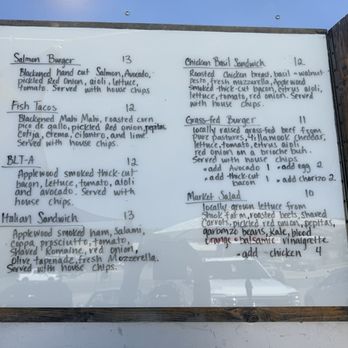 Salmon Burger 13
Blackened hand cut Salmon, Avocado,
pickled Red Onion, aioli, lettuce,
tomato. Served with house chips
Fish Tacos 12
Blackened Mahi Mahi, roasted corn
pico de gallo, pickled Red onion, pepitas
Cotija, Crema, cilantro, and lime.
Served with house chips.
BLT-A 12
Applewood smoked thick-cut
bacon, lettuce, tomato, aioli
and avocado. Served with
house chips.
Italian Sandwich 13
Applewood smoked ham, Salami,
coppa, prosciutto, tomato,
Shaved Romaine, red onion,
olive tapenade, fresh Mozzerella.
Served with house chips.
Chicken Basil Sandwich 12
Roasted chicken breast, basil-walnut
pesto, fresh mozzarella, Applewood
smoked thick-cut bacon, citrus aioli,
lettuce, tomato, red onion. Served
with house chips.
Grass-fed Burger 11
locally raised grass-fed beef from
Pure Pastures, tillamook cheddar,
lettuce, tomato, citrus aioli,
red onion on a brioche bun.
Served with house chips.
• add Avocado 1 • add egg 2
• add thick-cut bacon 1 • add chorizo 2
Market Salad 10
locally grown lettuce from
farm, roasted beets, shaved
Carrots, pickled red onion, pepitas,
garbonzo beans, kale, blood
orange - balsamic vinaigrette
- add chicken 4